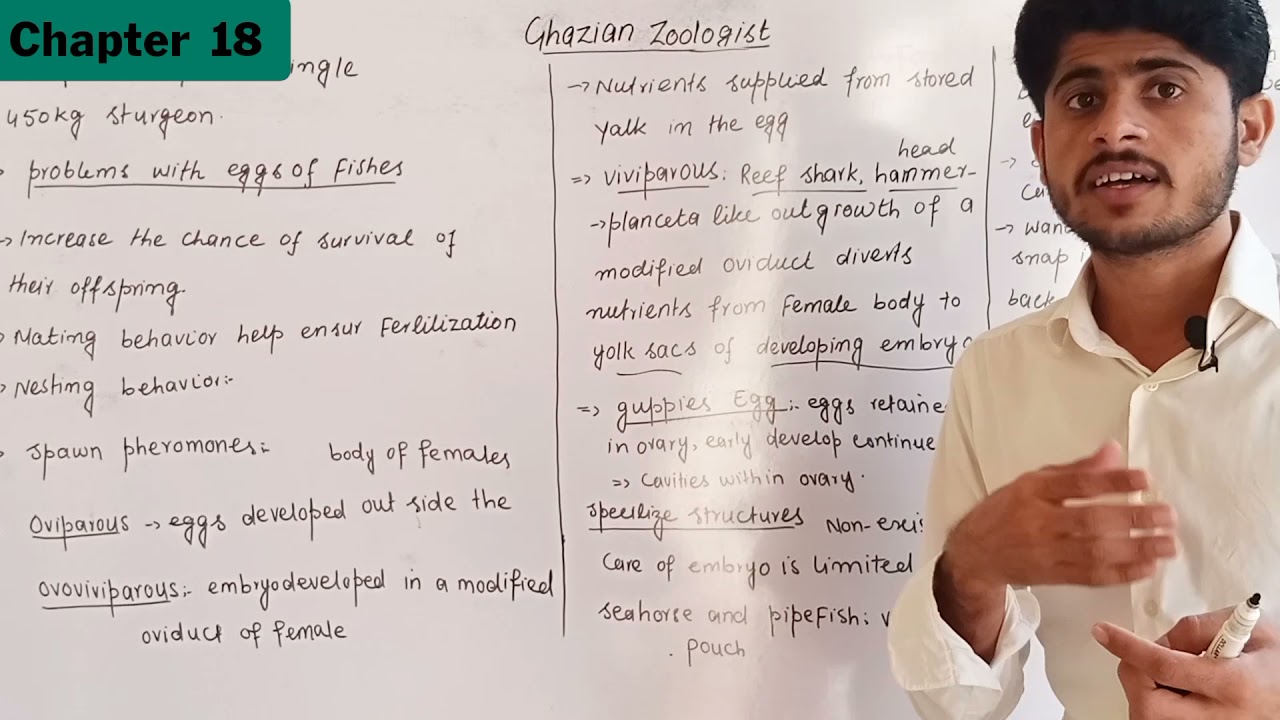 Chapter 18
Ghazian Zoologist
ingle
450kg sturgeon.
problems with eggs of Fishes
→ Increase the chance of survival of
their offspring.
Mating behavior help ensur Fertilization
Nesting behavior:-
spawn pheromones:
body of females
Oviparous → eggs developed out side the
ovoviviparous:- embryo developed in a modified
oviduct of female
→ Nutrients supplied from stored
yalk in the egg
head
=> viviparous: Reef shark, hammer-
→ planceta like outgrowth of a
modified oviduct diverts
nutrients from Female body to
yolk sacs of developing embryo
=> guppies Egg:- eggs retaine
in ovary, early develop continue
=> Cavities within ovary.
specilize structures Non-exis
Care of embryo is Limited
seahorse and pipeFish:
. pouch
snap
back